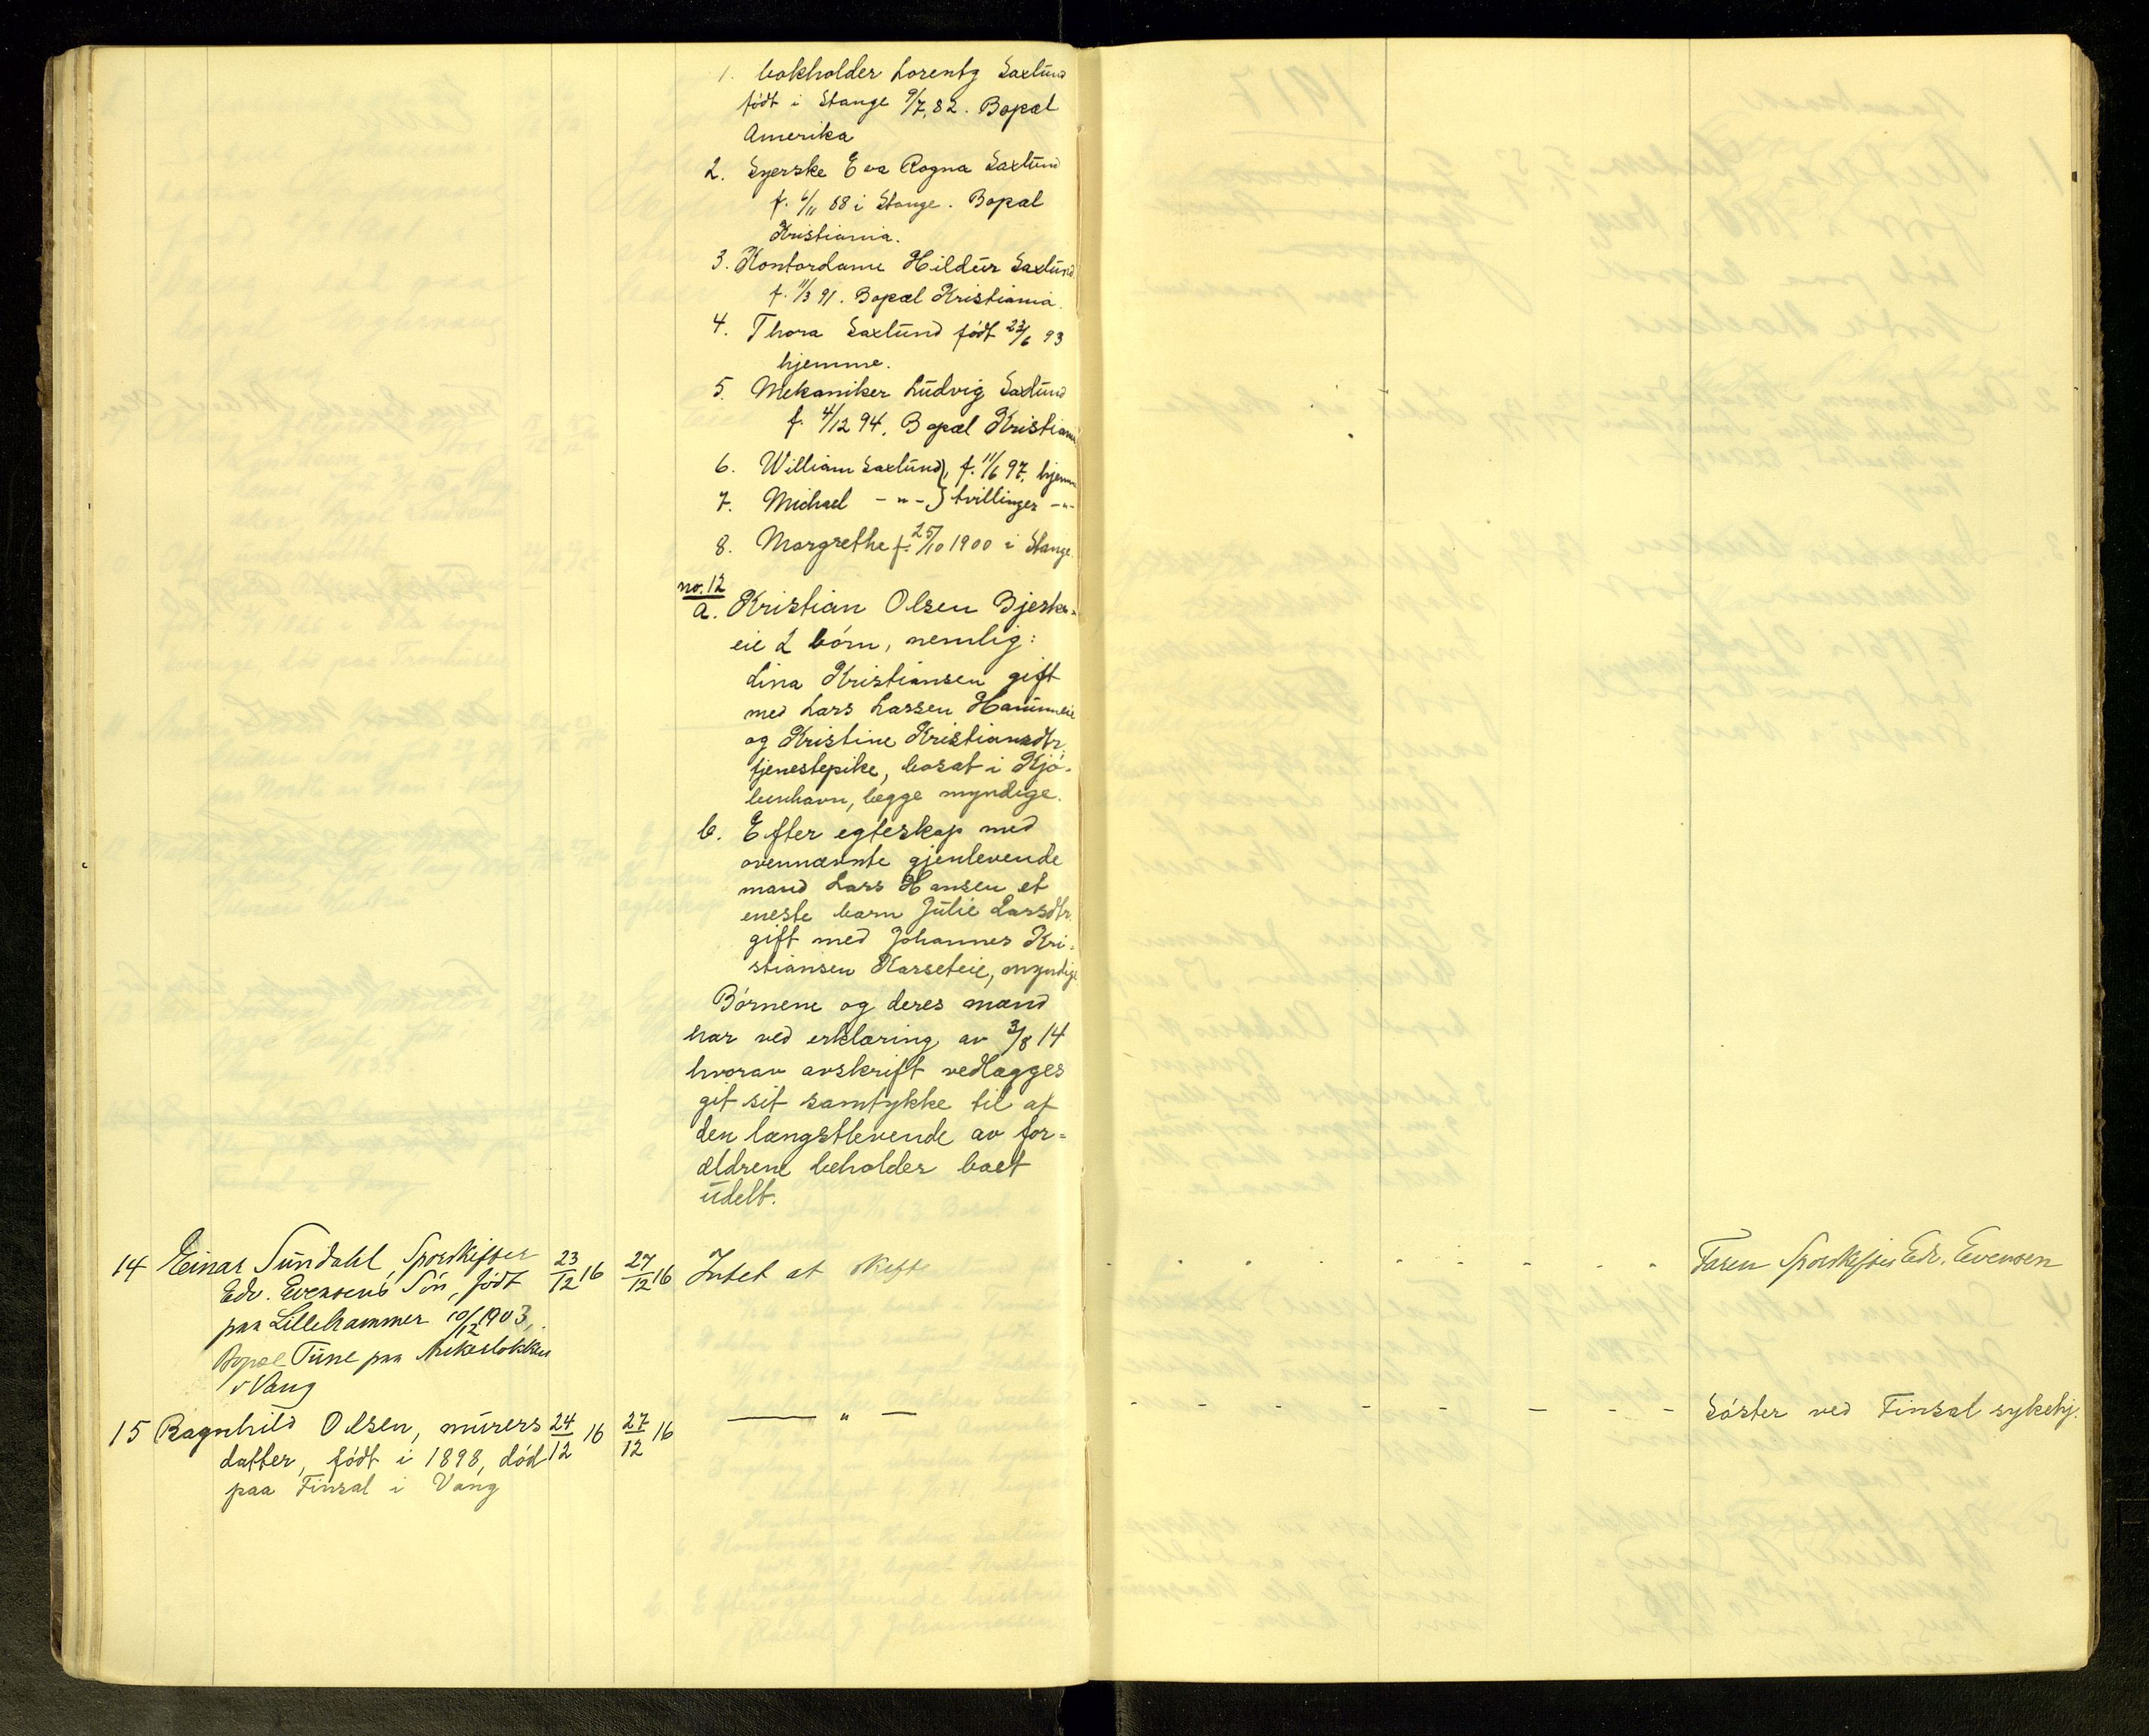 1. bokholder Lorentz Saxlund
født i Stange 9/7,82. Bopæl
Amerika
2. Syerske Eva Ragna Saxlund
f. 6/11 88 i Stange. Bopæl
Kristiania.
3. Kontordame Hildur Saxlund
f. 11/3 91. Bopæl Kristiania.
4. Thora Saxlund født 23/6 93
hjemme.
5. Mekaniker Ludvig Saxlund
f. 4/12 94. Bopæl Kristiania
6. William Saxlund}, f. 11/6 97, hjemme
7. Michael -"-} tvillinger -"-
8. Margrethe f. 25/10 1900 i Stange.
no. 12
a. Kristian Olsen Bjerke-
eie 2 børn, nemlig:
Lina Kristiansen gift
med Lars Larsen
og Kristine Kristiansdtr.
tjenestepike, bosat i Kjø-
benhavn, begge myndige.
b. Efter egteskap med
ovennævnte gjenlevende
mand Lars Hansen et
eneste barn Julie Larsdtr.
gift med Johannes Kri-
stiansen Karseteie, myndige
Børnene og deres mænd
har ved erklæring av 3/8 14
hvorav avskrift vedlægges
git sit samtykke til at
den længstlevende av for=
ældrene beholder boet
udelt.
14 Einar Sundahl, Sporskifter 23/12 16 27/12 16 Intet at skifte - - - - - - - - Faren Sporskifter Edv. Evensen
Edv. Evensens Søn, født
paa Lillehammer 10/12 1903,
Bopæl Tune paa
i Vang
15 Ragnhild Olsen, murers 24/12 16 27/12 16 — " — - - - - - - - - Søster ved Finsal sykehj.
datter, født i 1898, død
paa Finsal i Vang